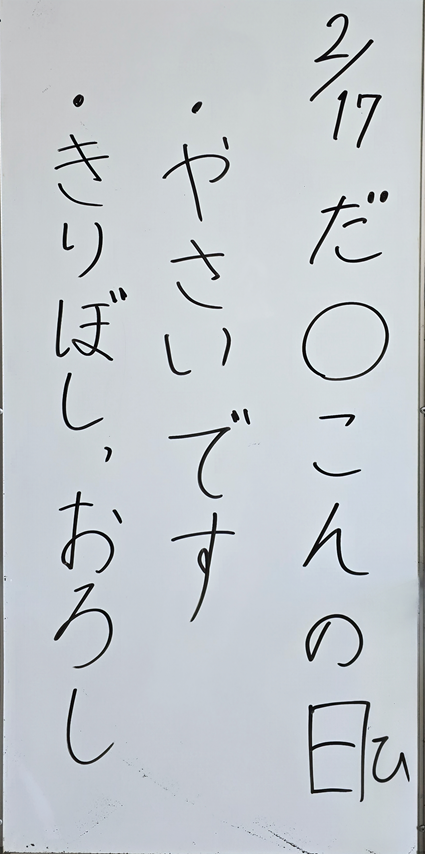 2/17 だ〇こんの日ひ
・やさいです
・きりぼし、おろし